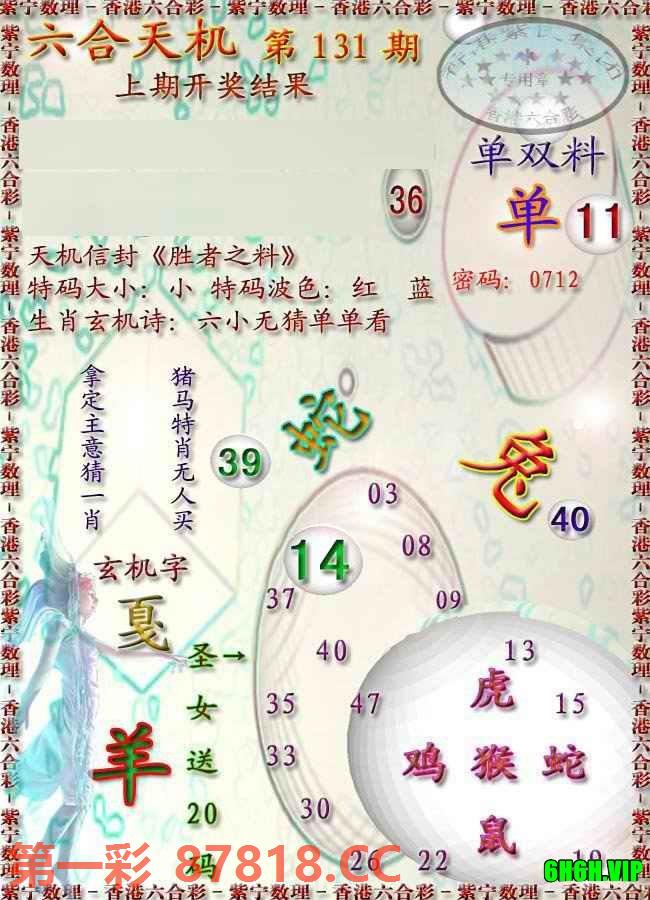 紫宁数理－香港六合彩－紫宁数理－香港六合彩－紫宁数理－香港六合彩
六合天机 第 131 期
上期开奖结果
专用章
香港六合彩
单双料
36
单 11
天机信封《胜者之料》
特码大小：小 特码波色：红 蓝
密码：0712
生肖玄机诗：六小无猜单单看
猪马特肖无人买
拿定主意猜一肖
蛇
39
兔
40
03
14
08
37
09
玄机字
戛
圣→
女
送
20
码
40
13
35
47
虎
15
羊
33
鸡 猴 蛇
30
鼠
26
22
19
第一彩 87818.CC
6H6H.VIP
紫宁数理－香港六合彩－紫宁数理－香港六合彩－紫宁数理－香港六合彩